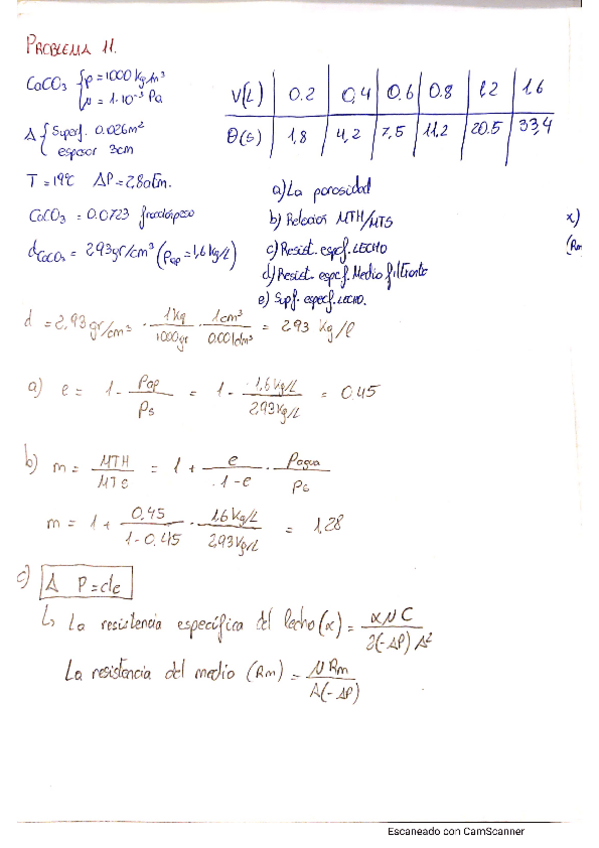 PROBLEMA 11.
CaCO3 { ρ = 1000 Kg/m³
μ = 1·10⁻³ Pa
A { Superf. 0.026m²
espesor 3cm
T = 19ºC ΔP = 2,8 atm.
CaCO3 = 0.0723 fracción peso
dCaCO3 = 2.93 gr/cm³ (ρap = 1,6 Kg/L)
V(L) 0.2 0,4 0.6 0.8 1.2 1.6
Θ(s) 1,8 4,2 7,5 11,2 20.5 33,4
a) La porosidad
b) Relación MTH/MTS
c) Resist. espcf. LECHO
d) Resist. espcf. Medio filtrante
e) Supf. especf. LECHO.
x)
(Rm
d = 2,93 gr/cm³ · 1Kg/1000gr · 1cm³/0.001dm³ = 2.93 Kg/l
a) e = 1 - ρap/ρs = 1 - 1,6Kg/L / 2,93Kg/L = 0.45
b) m = MTH/MTS = 1 + e/1-e · ρagua/ρs
m = 1 + 0,45/1-0.45 · 1,6Kg/L / 2,93Kg/L = 1,28
c) A P=cte
↳ La resistencia específica del lecho (α) = αμC / 2(-ΔP)A²
La resistancia del medio (Rm) = μRm / A(-ΔP)
Escaneado con CamScanner